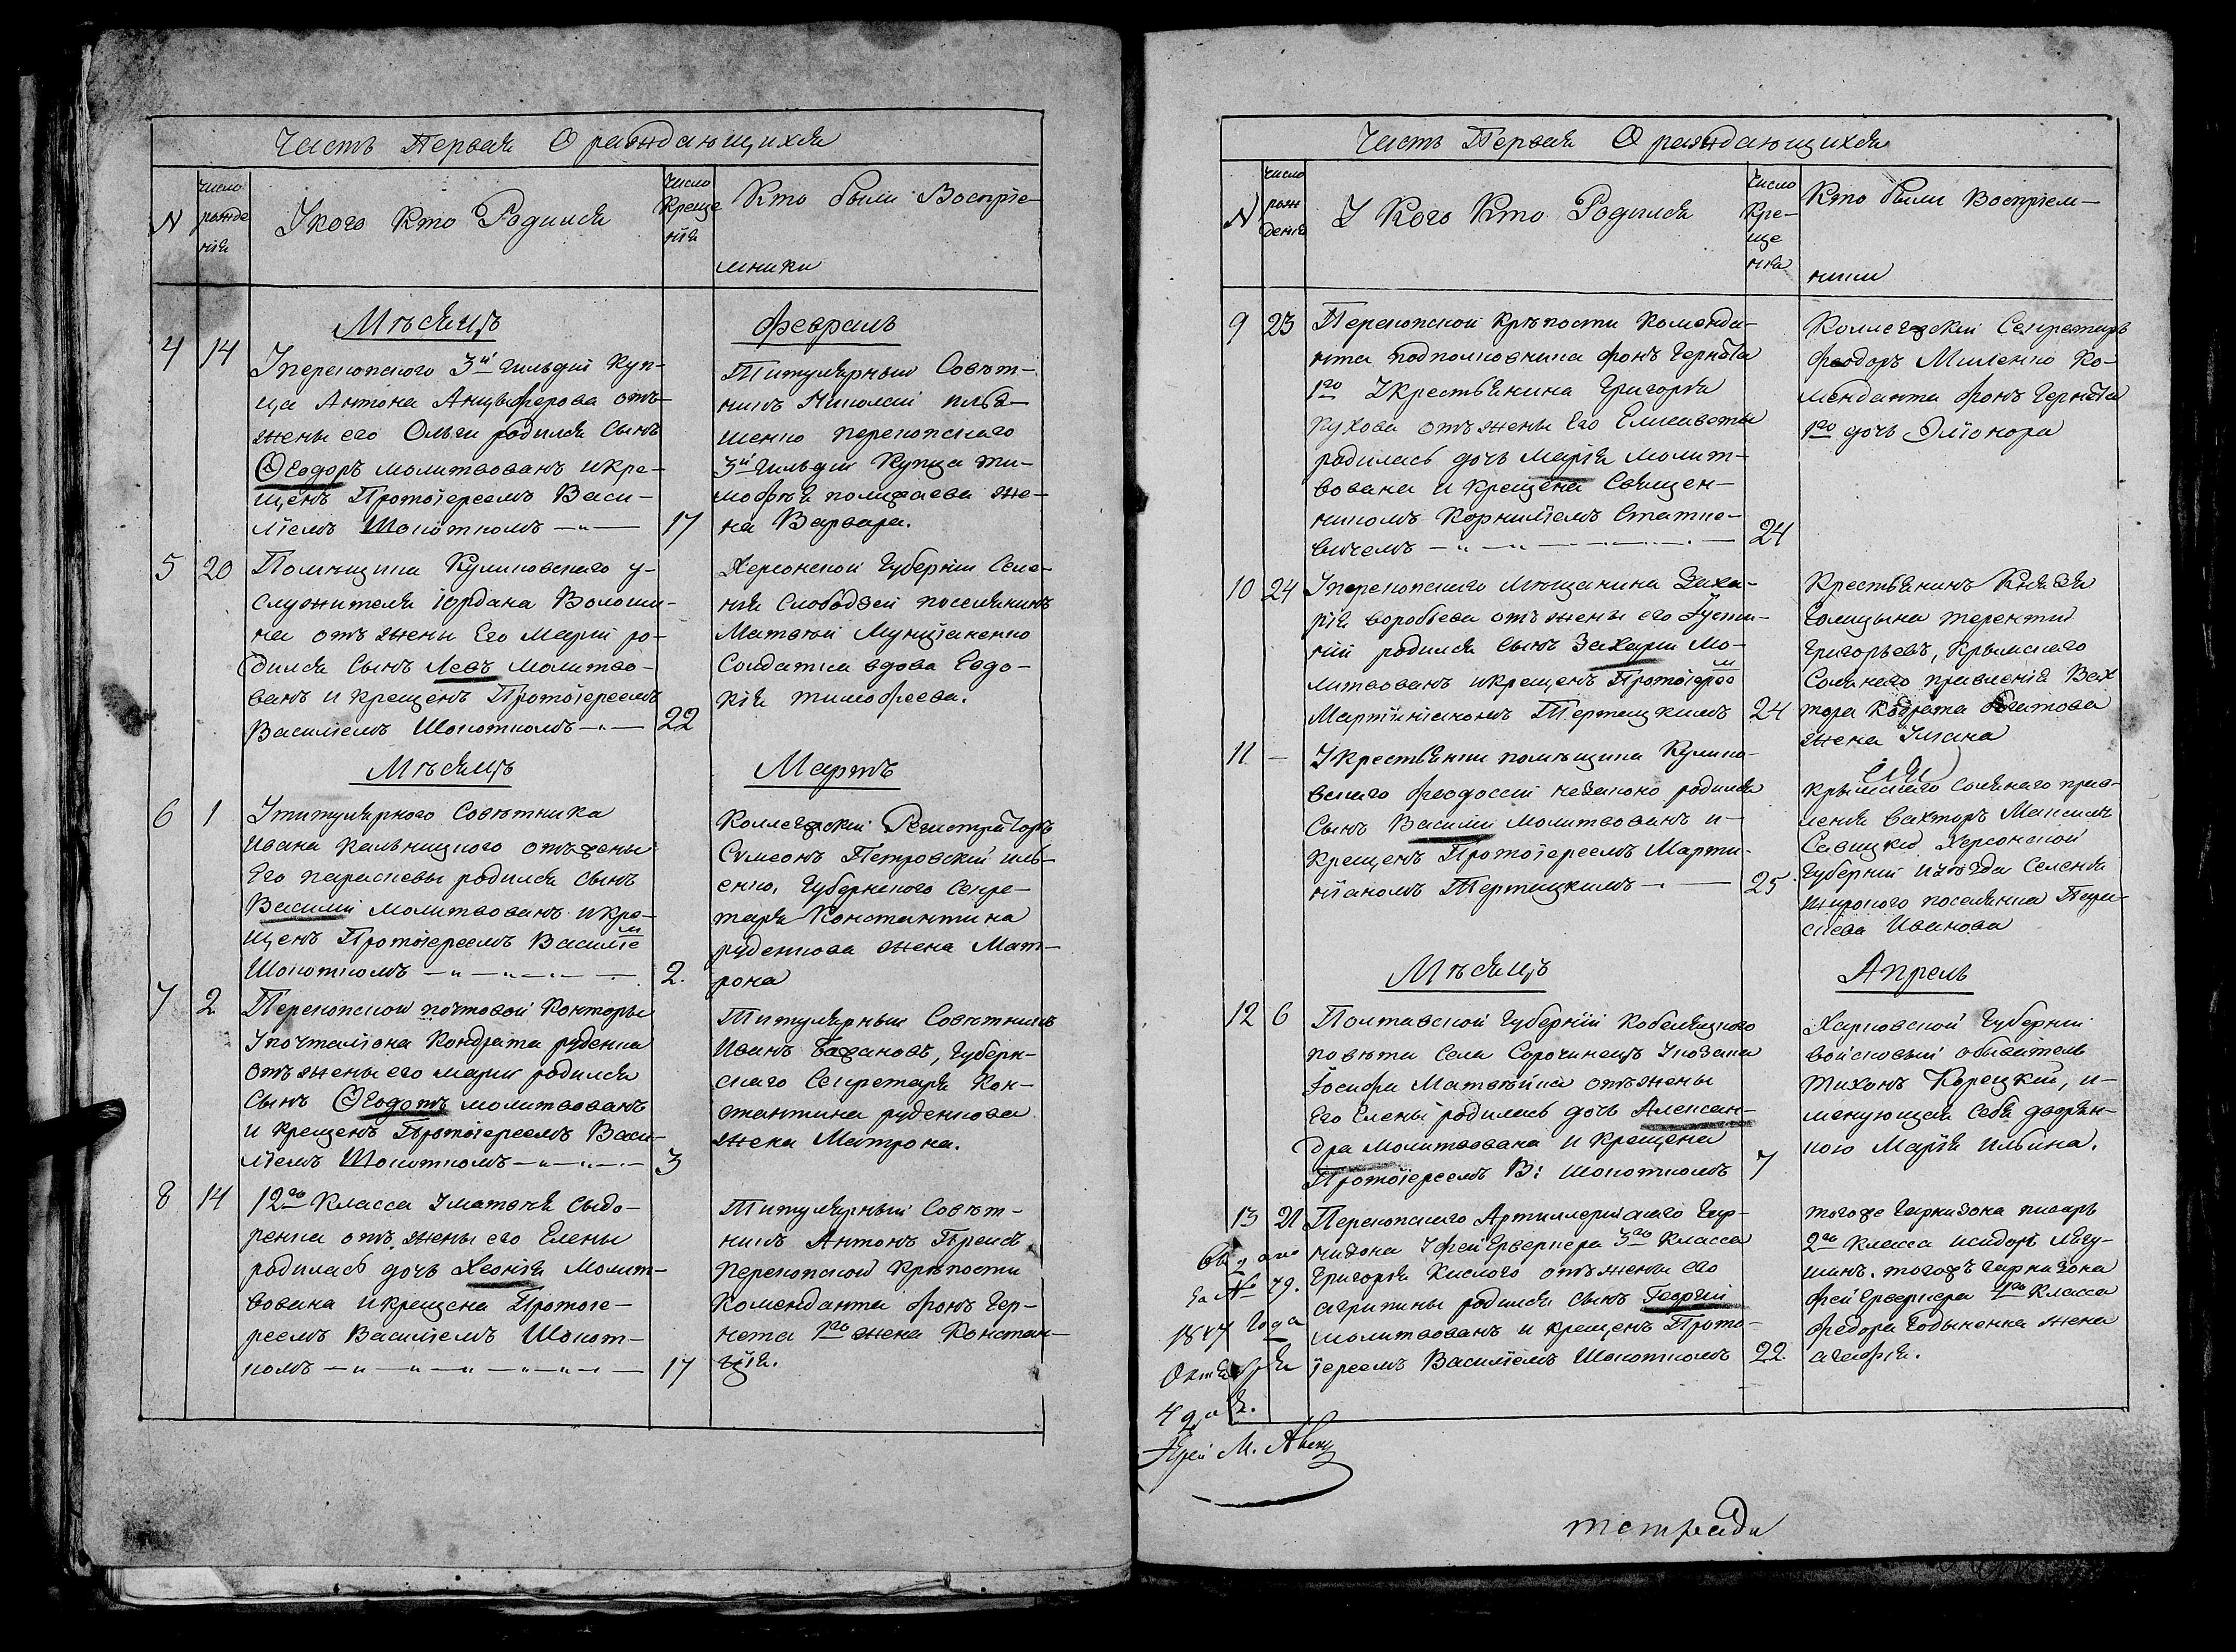 Часть Первая О раждающихся
N
число
рожде
нія
Укого Кто Родился
Число
Креще
нія
Кто были Воспріе-
мники
Мѣсяцъ
февраль
4
14
Уперекопского 3й гильдіи Куп-
ца Антона Анцыферова отъ
жены его Ольги родился сынъ
Ѳеодоръ молитвованъ икре-
щенъ Протоіереемъ Васи-
ліемъ Шокоткомъ
17
Титулярный Совѣт-
никъ Николай Илья-
шенко перекопскаго
3й гильдіи Купца ти-
мофѣя полицаева же-
на Варвара.
5
20
Помѣщика Куликовскаго у
служителя іордана Волоши-
на отъ жены Его Маріи ро-
дился сынъ Левъ молитво-
ванъ и крещенъ Протоіереемъ
Василіемъ Шокоткомъ
22
Херсонской Губерніи Селе-
нія Слободзеи поселянинъ
Матвѣй Мунтяненко
Солдатка вдова Евдо-
кія тимофеева.
Мѣсяцъ
Мартъ
6
1
Утитулярного Совѣтника
Ивана Кальницкого отъ жены
Его параскевы родился сынъ
Василій молитвованъ икре-
щенъ Протоіереемъ Василіем
Шокоткомъ
2.
Коллежскій Регистраторъ
Сѵмеонъ Петровскій
Губернского Секре-
таря Константина
руденкова жена Мат-
рона
7
2
Перекопской почтовой Конторы
Упочталіона Кондрата руденка
отъ жены его маріи родился
сынъ Ѳеодотъ молитвованъ
и крещенъ Протоіереемъ Васи-
ліемъ Шокоткомъ
3
Титулярный Совѣтникъ
Иванъ Бажановъ, Губерн-
скаго Секретаря Кон-
стантина руденкова
жена Матрона.
8
14
12го Класса Уматвѣя сидо-
ренка отъ жены его Елены
родилась дочь Хеонія Молит-
вована икрещена Протоіе-
реемъ Василіемъ Шокот-
комъ
17
Титулярный Совѣт-
никъ Антонъ Прейсъ
Перекопской Крѣпости
Коменданта фонъ Гер-
нета 1го жена Констан-
ція.
Часть Первая О раждающихся
N
число
рож
денія
У Кого Кто Родился
Число
Кре-
ще
нія
Кто были Воспріем-
ники
9
23
Перекопской крѣпости Коменда-
нта подполковника фонъ Гернета
1го Укрестьянина Григорія
Кухова отъ жены Его Елисаветы
родилась дочь Марія молит-
вована и крещена Священ-
никомъ Корниліемъ Статке-
вичемъ
24
Коллежскій Секретарь
феодоръ Миленко Ко-
менданта фонъ Гернета
1го дочь Элеонора
10
24
Уперекопскаго мѣщанина Заха-
рія воробьева отъ жены его Густи-
ніи родился сынъ Захарій мо-
литвованъ икрещенъ Протоіерее м
Мартиніаномъ Тертецкимъ
24
Крестьянинъ Князя
Голицына терентій
Григорьевъ, Крымскаго
Солянаго правленія Вах
тера Кодрата Богатова
жена Уліана
11
Укрестьянки помѣщика Кулико-
вскаго феодосіи незаконо родился
Сынъ Василій молитвованъ и
крещенъ Протоіереемъ Марти-
ніаномъ Тертецкимъ
25
Крымскаго солянаго прав-
ленія вахтеръ Максимъ
Савицкій Херсонской
Губерніи и уѣзда Селенія
Широкого поселянка Пара-
скева Иванова
Мѣсяцъ
Апрель
12
6
Полтавской Губерніи Кобеляцкого
повѣта села Сорочинецъ Указака
Іосифа Матвѣйка отъ жены
Его Елены родилась дочь Алексан-
дра Молитвована и крещена
Протоіереемъ В: Шокоткомъ
7
Харковской Губерніи
войсковый обыватель
Тихонъ Корецкій, и-
менующая себя дворян-
кою Марія Ильина.
13
21
Перекопскаго Артиллерійскаго Гар-
низона Уфейерверкера 3го класса
Григорія Кислого отъ жены его
агрипины родился сынъ Георгій
молитвованъ и крещенъ Прото-
іереемъ Василіемъ Шокоткомъ
22.
тогоже Гарнизона писарь
2го класса исидоръ Лягу-
шинъ, тогожъ гарнизона
фейерверкера 4го класса
федора Годыненка жена
агафія.
Выдано
за № 79.
1847 года
Октября
4 дня.
Іерей М.
тетради